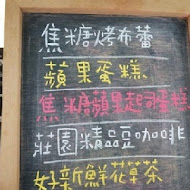 焦糖烤布蕾
蘋果蛋糕
焦糖蘋果起司蛋糕
莊園精品豆咖啡
好新鮮花草茶